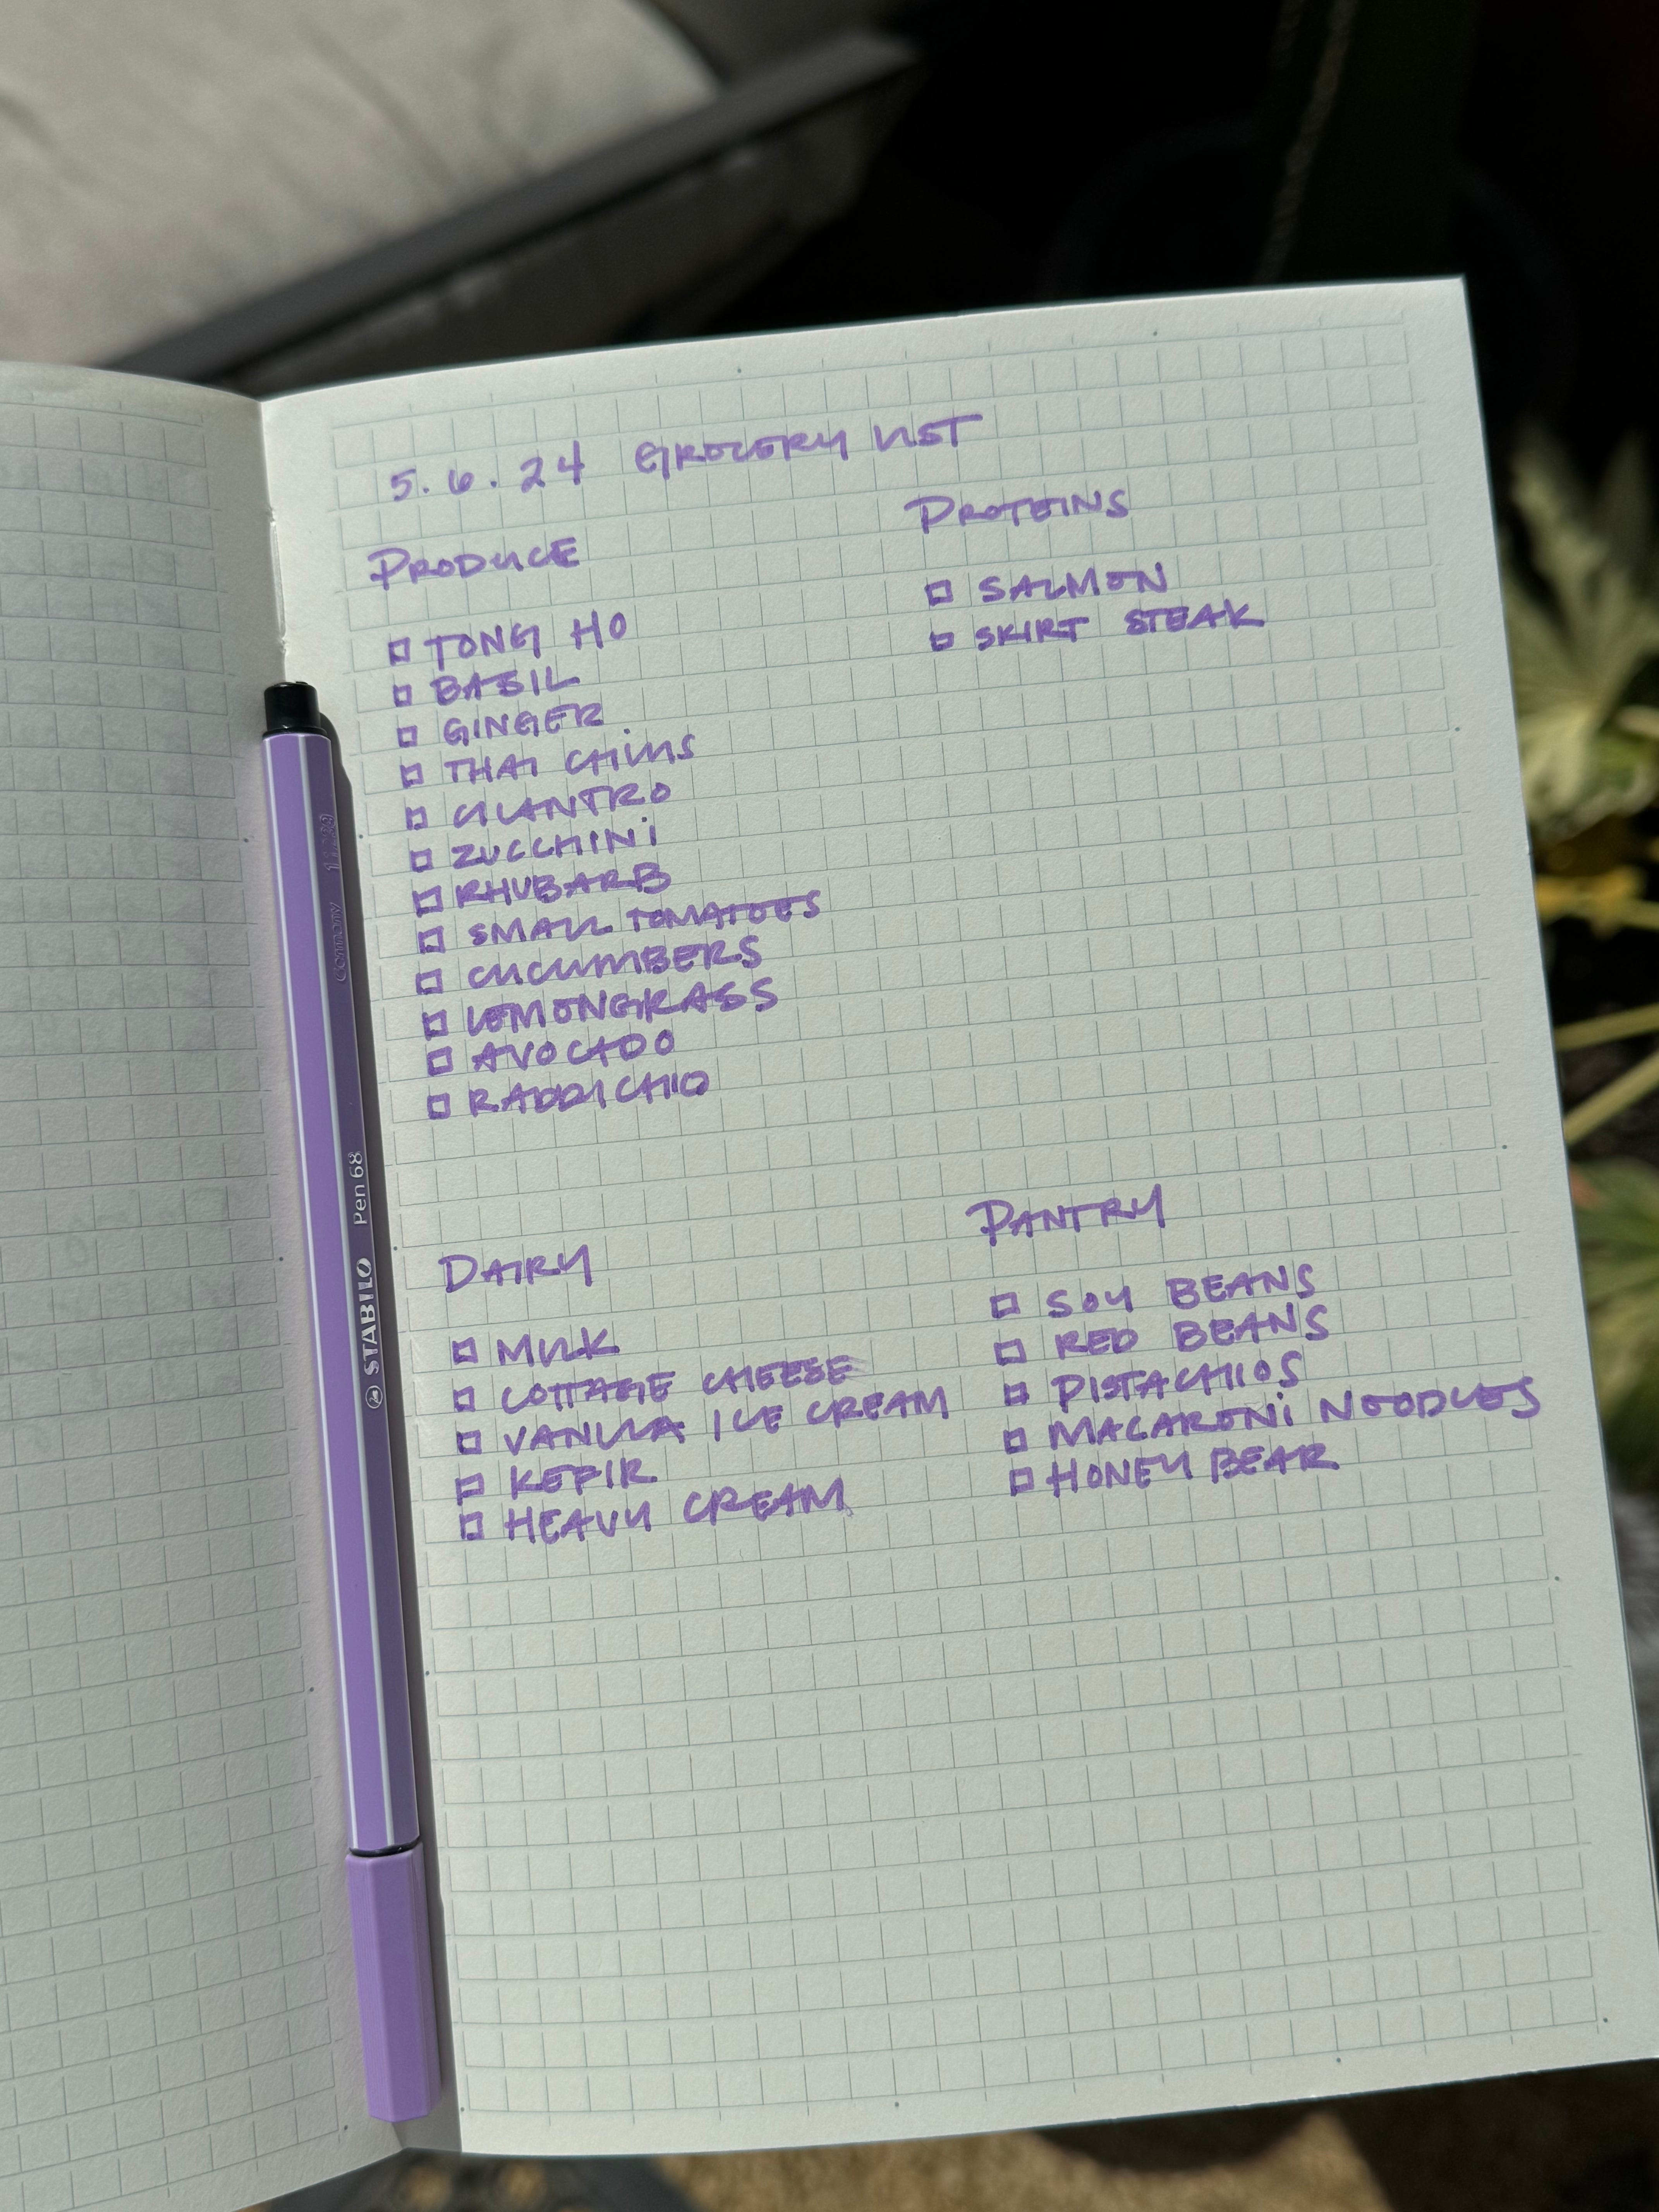 5.6.24 GROCERY LIST
PRODUCE
☐ TONG HO
☐ BASIL
☐ GINGER
☐ THAI CHILIS
☐ CILANTRO
☐ ZUCCHINI
☐ RHUBARB
☐ SMALL TOMATOES
☐ CUCUMBERS
☐ LEMONGRASS
☐ AVOCADO
☐ RADDICHIO
PROTEINS
☐ SALMON
☐ SKIRT STEAK
DAIRY
☐ MILK
☐ COTTAGE CHEESE
☐ VANILLA ICE CREAM
☐ KEFIR
☐ HEAVY CREAM
PANTRY
☐ SOY BEANS
☐ RED BEANS
☐ PISTACHIOS
☐ MACARONI NOODLES
☐ HONEY BEAR
STABILO Pen 68
Germany